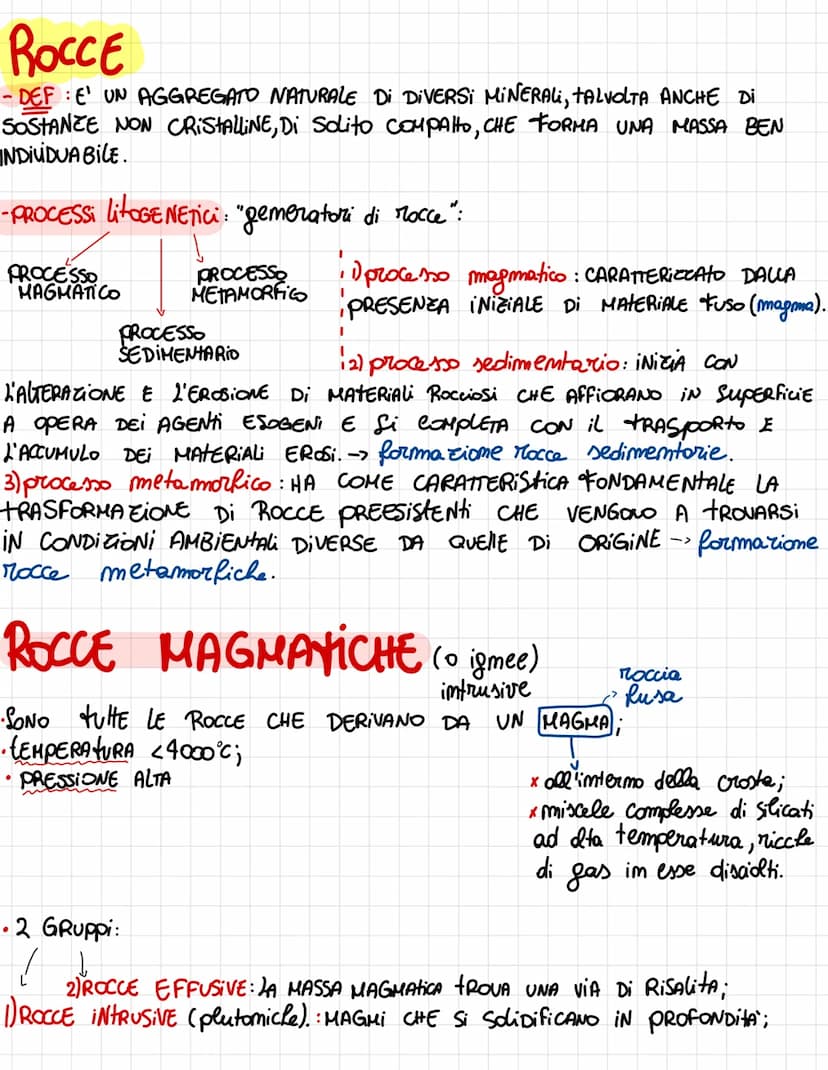 ROCCE
- DEF : E' UN AGGREGATO NATURALE DI DIVERSI MINERALI, TALVOLTA ANCHE DI
SOSTANZE NON CRISTALLINE, DI SOLITO COMPATTO, CHE FORMA UNA MASSA BEN
INDIVIDUABILE.
- PROCESSI LITOGENETICI: "generatori di rocce":
PROCESSO
MAGMATICO
PROCESSO
METAMORFICO
PROCESSO
SEDIMENTARIO
1) processo magmatico : CARATTERIZZATO DALLA
PRESENZA INIZIALE DI MATERIALE FUSO (magma).
2) processo sedimentario: INIZIA CON
L'ALTERAZIONE E L'EROSIONE DI MATERIALI ROCCIOSI CHE AFFIORANO IN SUPERFICIE
A OPERA DEI AGENTI ESOGENI E SI COMPLETA CON IL TRASPORTO E
L'ACCUMULO DEI MATERIALI EROSI. -> formazione rocce sedimentarie.
3) processo metamorfico : HA COME CARATTERISTICA FONDAMENTALE LA
TRASFORMAZIONE DI ROCCE PREESISTENTI CHE VENGONO A TROVARSI
IN CONDIZIONI AMBIENTALI DIVERSE DA QUELLE DI ORIGINE -> formazione
rocce metamorfiche.
ROCCE MAGMATICHE (o ignee)
intrusive
roccia
fusa
• SONO TUTTE LE ROCCE CHE DERIVANO DA UN MAGMA;
• TEMPERATURA <4000°C;
• PRESSIONE ALTA
x all'interno della crosta;
x miscele complesse di silicati
ad alta temperatura, ricche
di gas in esse disciolti.
• 2 GRUPPI:
2) ROCCE EFFUSIVE: LA MASSA MAGMATICA TROVA UNA VIA DI RISALITA;
1) ROCCE INTRUSIVE (plutoniche). : MAGMI CHE SI SOLIDIFICANO IN PROFONDITA';